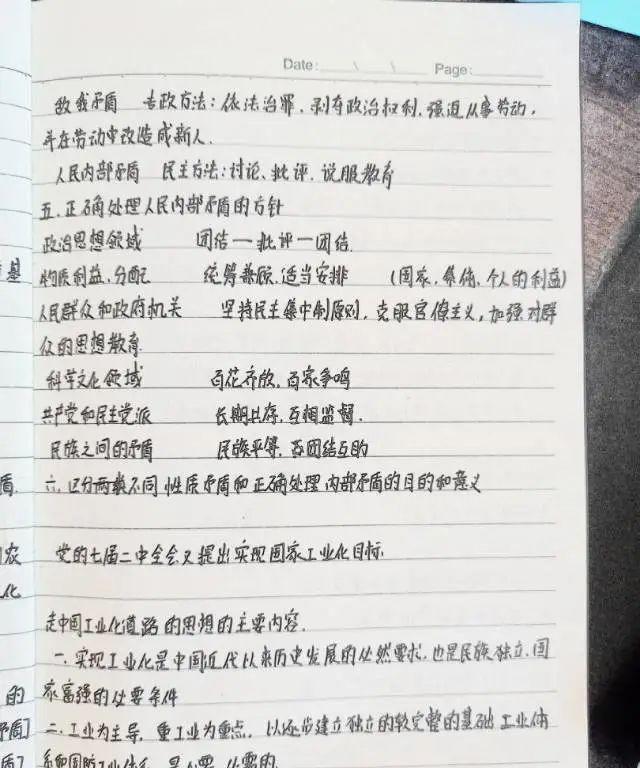 Date: \ \ Page:
敌我矛盾 专政方法：依法治罪、剥夺政治权利、强迫从事劳动，
并在劳动中改造成新人.
人民内部矛盾 民主方法：讨论、批评、说服教育
五、正确处理人民内部矛盾的方针
政治思想领域 团结一批评一团结.
基
物质利益、分配 统筹兼顾、适当安排 (国家、集体、个人的利益)
人民群众和政府机关 坚持民主集中制原则，克服官僚主义，加强对群
众的思想教育.
科学文化领域 百花齐放，百家争鸣
共产党和民主党派 长期共存，互相监督.
民族之间的矛盾 民族平等，团结互助
盾.
六、区分两类不同性质矛盾和正确处理内部矛盾的目的和意义
农
党的七届二中全会又提出实现国家工业化目标.
化
走中国工业化道路的思想的主要内容.
一、实现工业化是中国近代以来历史发展的必然要求，也是民族独立、国
的
家富强的必要条件
矛盾]
二、工业为主导，重工业为重点，以逐步建立独立的较完整的基础工业体
盾]
系和国防工业体系，是必要的.